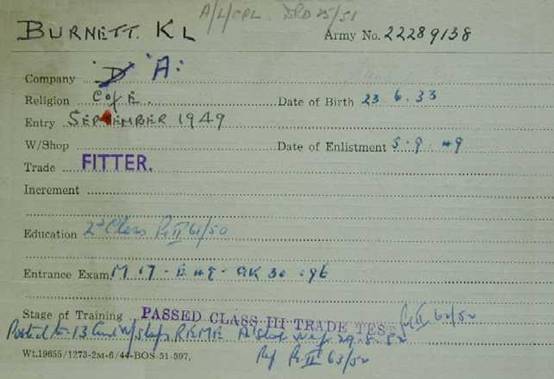 A/L/CPL. DRO 25/51
BURNETT. KL Army No. 22289138
Company 'D' 'A'
Religion C of E. Date of Birth 23.6.33
Entry SEPTEMBER 1949
W/Shop Date of Enlistment 5.9.49
Trade FITTER.
Increment
Education 2nd Class Pt II 61/50
Entrance Exam. M 17 - E 49 - GK 30 - 96
Stage of Training PASSED CLASS III TRADE TES Pt II 62/52
Posted to 13 W/Shops REME 29.8.52
Wt.19655/1273-2M-6/44-BOS 51-597. Ref Pt II 63/52